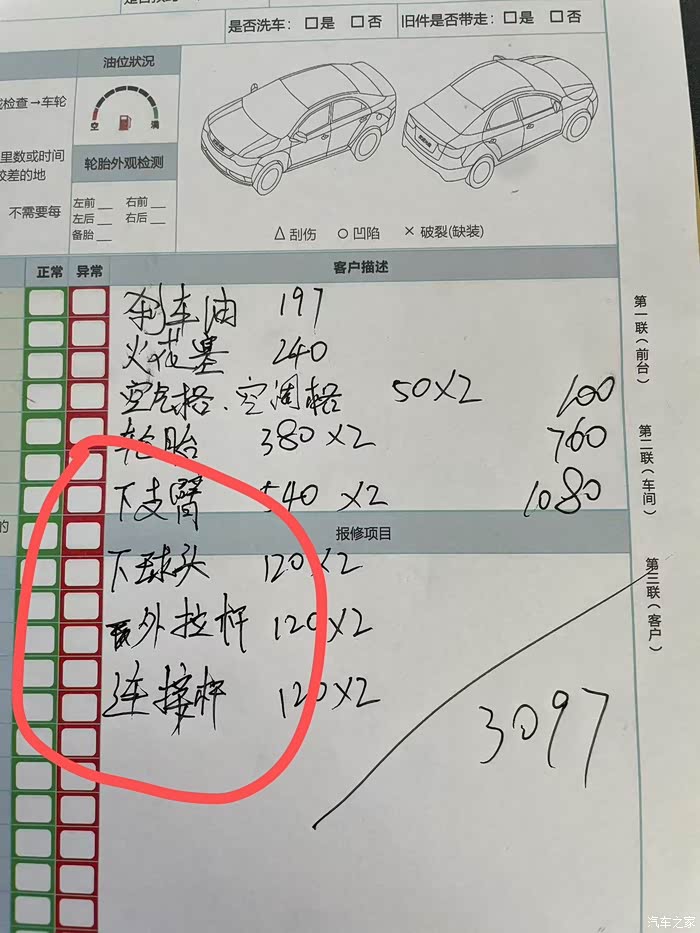 是否洗车： □是 □否 旧件是否带走：□是 □否
油位状况
检查→车轮
空 满
里数或时间
轮胎外观检测
较差的地
不需要每
左前 __ 右前 __
左后 __ 右后 __
备胎 __
△ 刮伤 ○ 凹陷 × 破裂(缺装)
正常 异常 客户描述
刹车油 197
火花塞 240
空气格、空调格 50×2 100
轮胎 380×2 760
下支臂 540 ×2 1080
的
报修项目
下球头 120×2
外拉杆 120×2
连接杆 120×2
3097
第一联(前台)
第二联(车间)
第三联(客户)
汽车之家